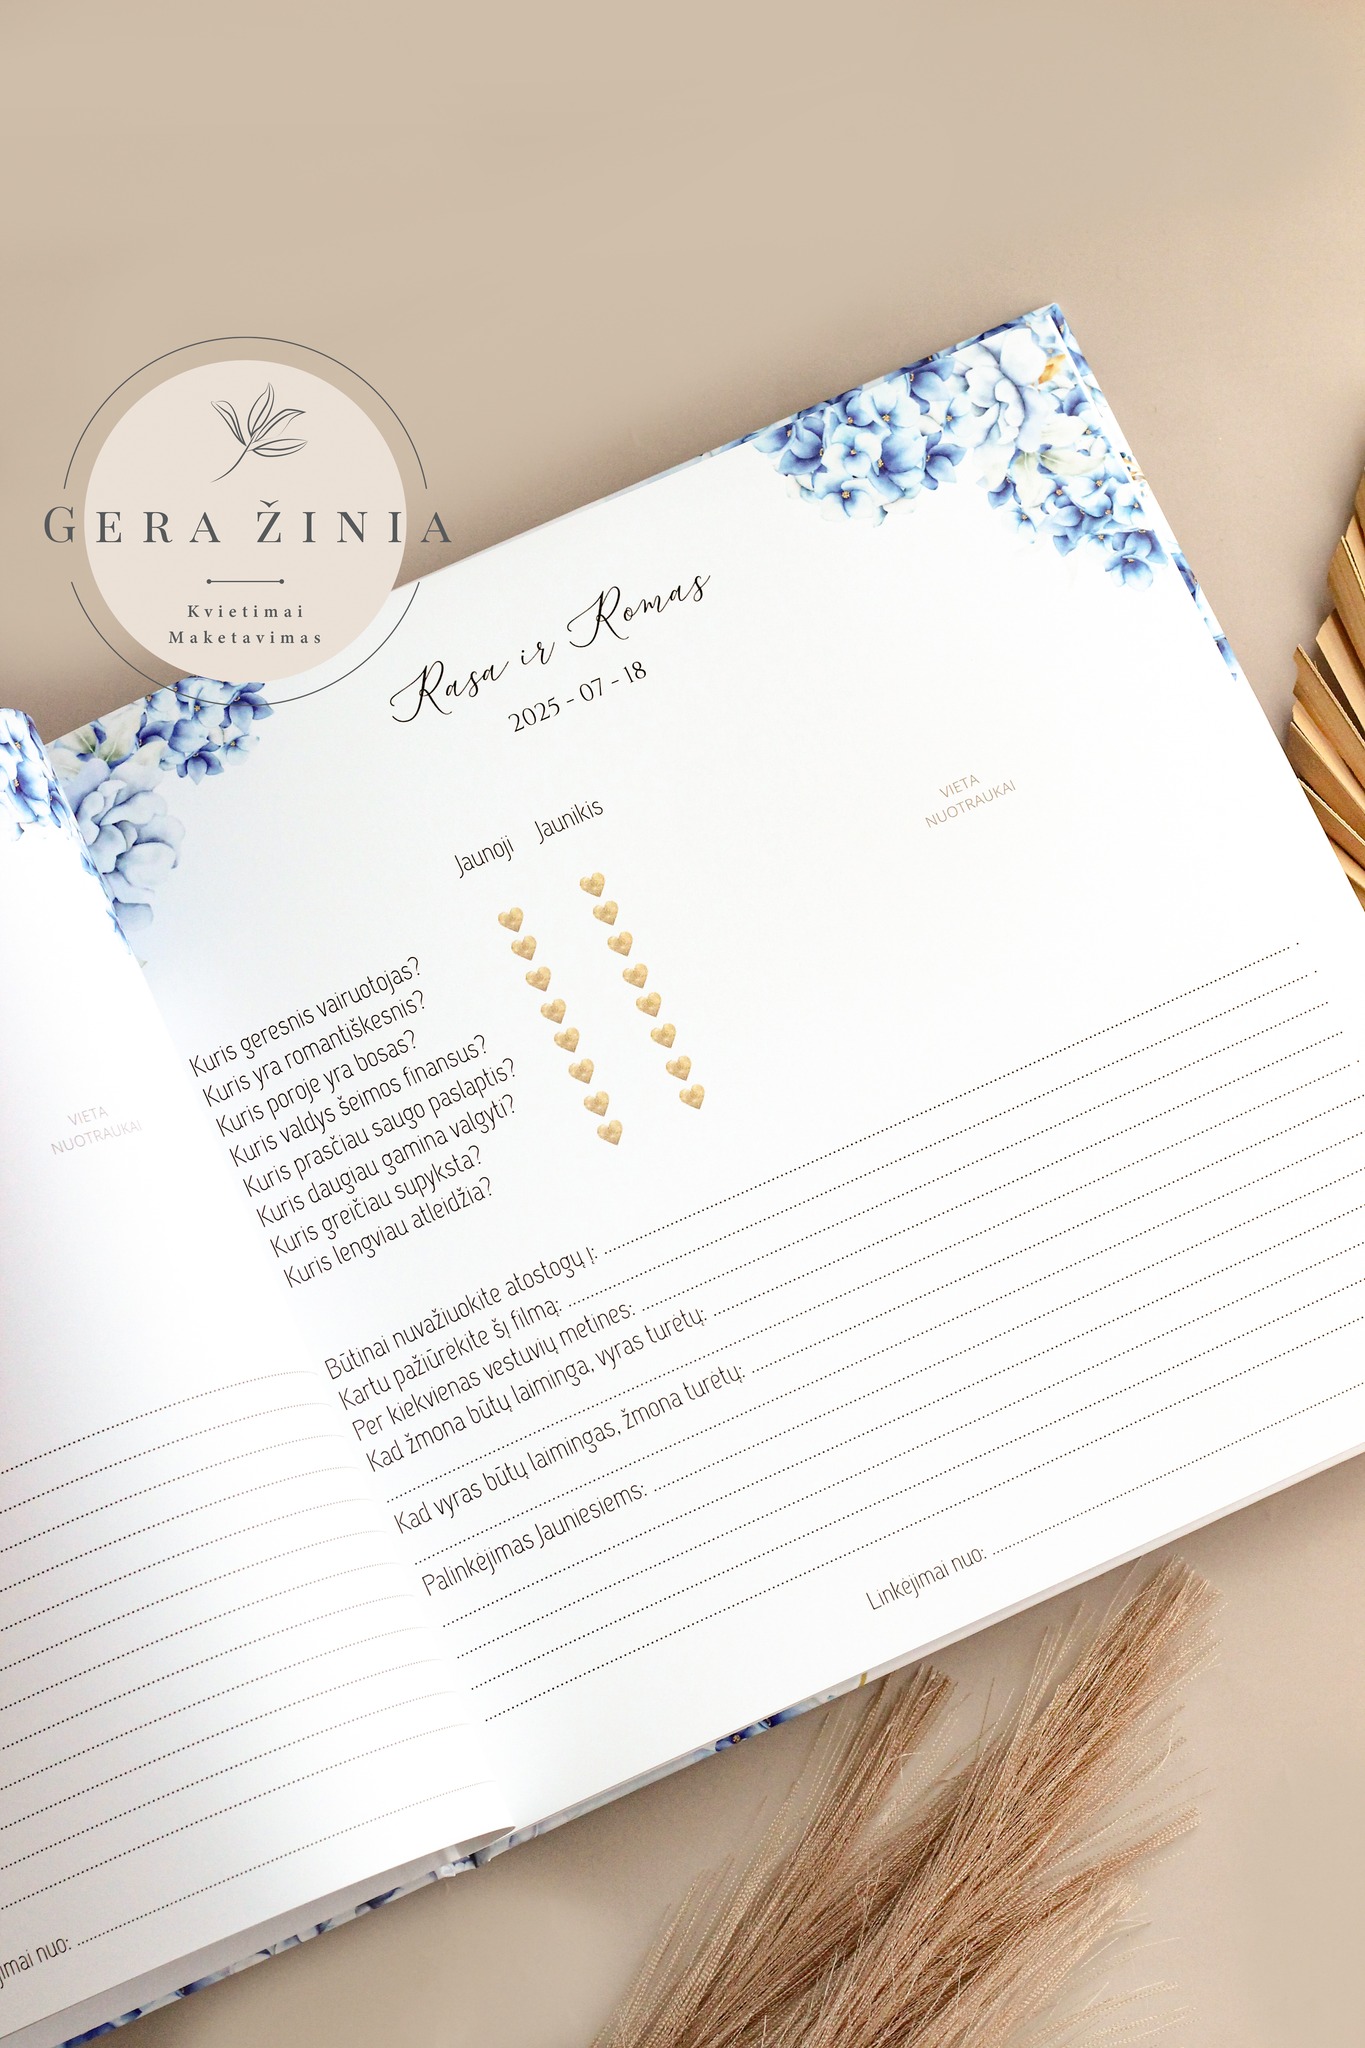 GERA ŽINIA
Kvietimai
Maketavimas
Rasa ir Romas
2025 - 07 - 18
Jaunoji Jaunikis
VIETA
NUOTRAUKAI
Kuris geresnis vairuotojas?
Kuris yra romantiškesnis?
Kuris poroje yra bosas?
Kuris valdys šeimos finansus?
Kuris prasčiau saugo paslaptis?
Kuris daugiau gamina valgyti?
Kuris greičiau supyksta?
Kuris lengviau atleidžia?
Būtinai nuvažiuokite atostogų į:
Kartu pažiūrėkite šį filmą:
Per kiekvienas vestuvių metines:
Kad žmona būtų laiminga, vyras turėtų:
Kad vyras būtų laimingas, žmona turėtų:
Palinkėjimas Jauniesiems:
Linkėjimai nuo:
VIETA
NUOTRAUKAI
jimai nuo: